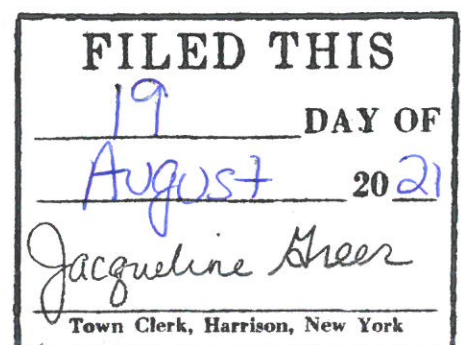 FILED THIS
19 DAY OF
August 20 21
Jacqueline Greer
Town Clerk, Harrison, New York